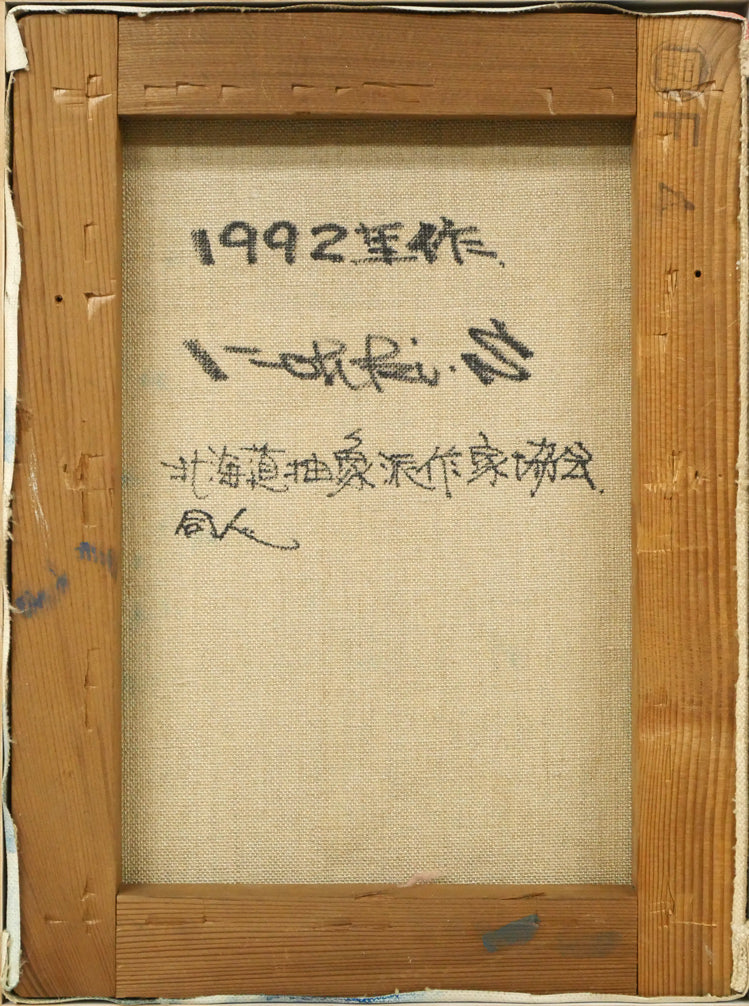 1992年作.
北海道抽象派作家協会.
同人